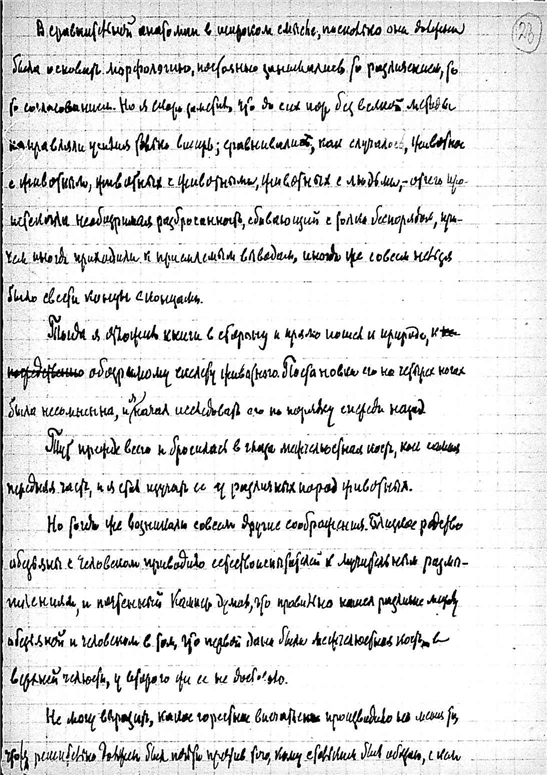 23
В сравнительной анатомии в широком смысле, поскольку она должна
была основать морфологию, постоянно занимались то различием, то
то согласованием. Но я скоро заметил, что до сих пор без всякой методы
направляли усилия только вширь; сравнивали, как случалось, животное
с животным, животных с животными, животных с людьми, – отчего про-
истекала необозримая разбросанность, сбивающий с толку беспорядок, при-
чем иногда приходили к приемлемым выводам, иногда же совсем нельзя
было свести концы с концами.
Тогда я отложил книги в сторону и прямо пошел к природе, к
обозримому скелету животного. Постановка его на четырех ногах
была несомненна, и я начал исследовать его по порядку спереди назад
Тут прежде всего и бросилась в глаза межчелюстная кость, как самая
передняя часть, и я стал изучать ее у различных пород животных.
Но тогда же возникали совсем другие соображения. Близкое родство
обезьяны с человеком приводило естествоиспытателей к мучительным размы-
шлениям, и почтенный Кампер думал, что правильно нашел различие между
обезьяной и человеком в том, что первой дана была межчелюстная кость в
верхней челюсти, у второго же ее не
Не могу выразить, какое горестное впечатление производило на меня то,
что я решительно должен был пойти против того, кому столь был обязан, с кем